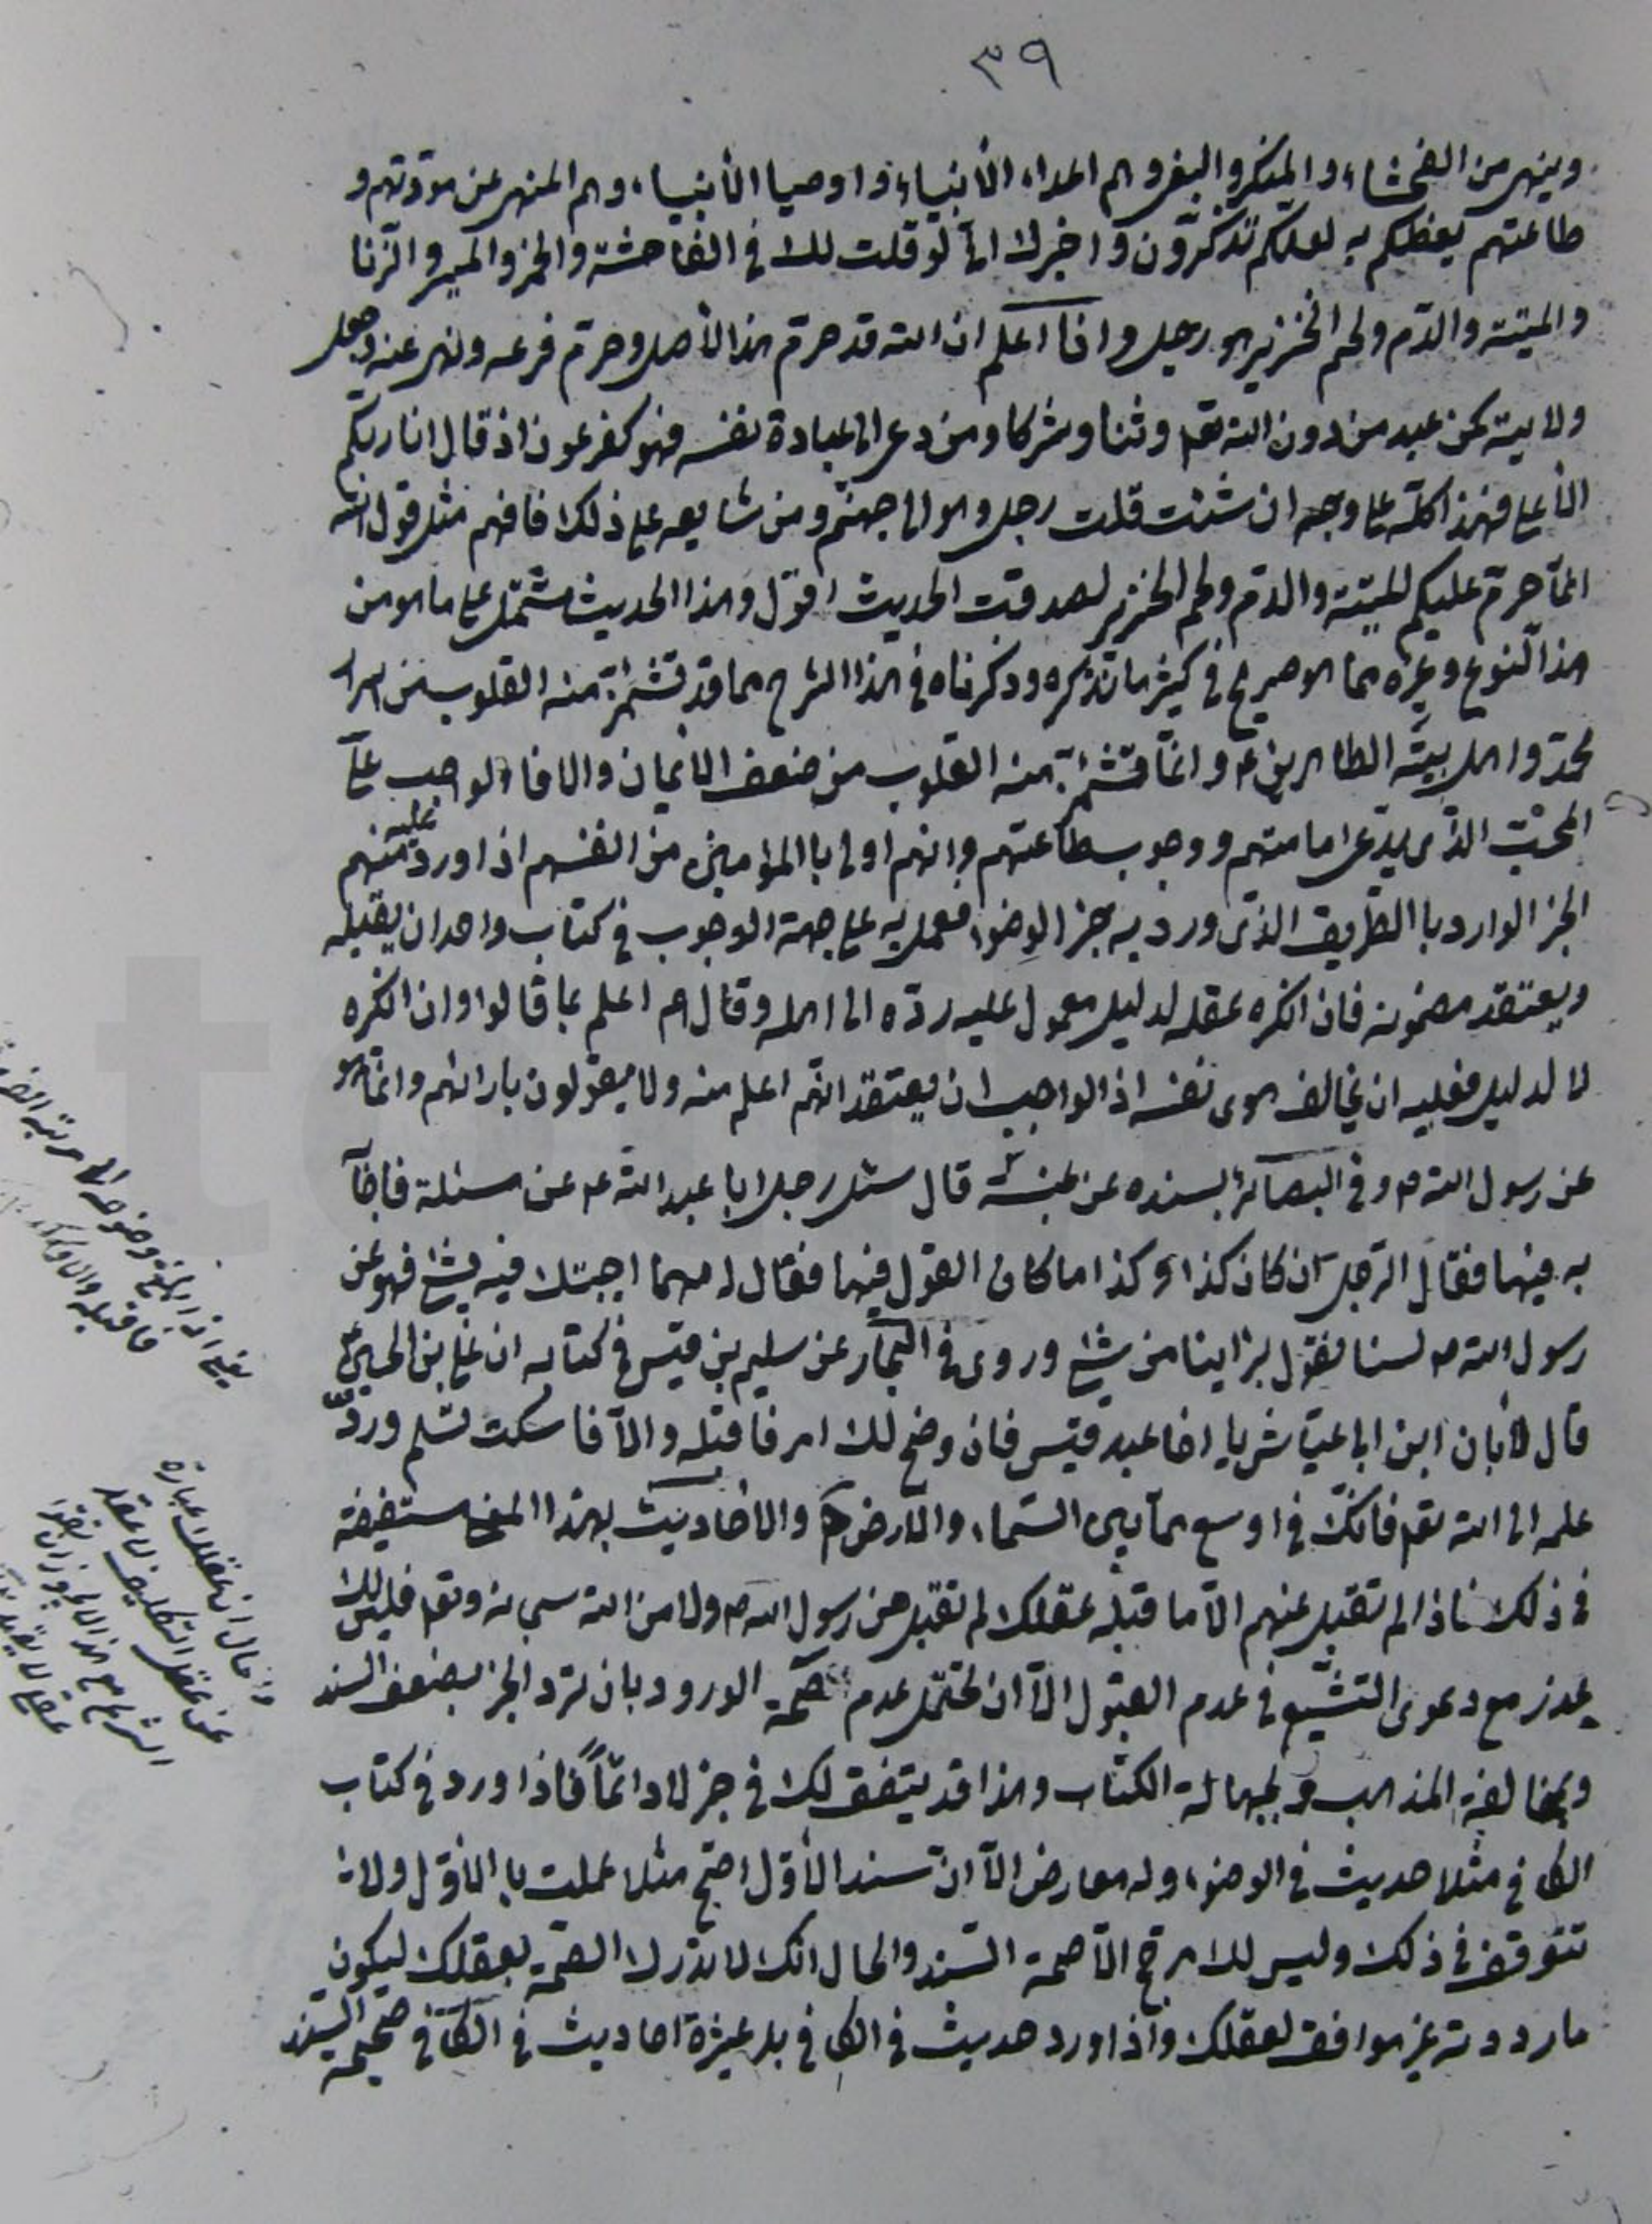 ٣٩
وينهى من الفحشاء والمنكر والبغى وهم اعداء الأنبياء واوصيا الأنبياء وهم المنهى عن مودّتهم و
طاعتهم يعظكم به لعلكم تذكّرون واخبرك انّى لو قلت لك فى الفاحشة والخمر والميسر والزّنا
والميتة والدّم ولحم الخنزير هو رجل وانا اعلم ان الله قد حرّم هذا الأصل وحرّم فرعه ونهى عنه وجعل
ولايته كمن عبد من دون الله تعم وثنا وشركا ومن دعى الى عبادة نفسه فهو كفرعون اذ قال انا ربكم
الأعلى فهذا كلّه على وجه ان شئت قلت رجل وهو الى جهنّم ومن شايعه على ذلك فافهم مثل قول الله
انّما حرّم عليكم الميتة والدّم ولحم الخنزير لصدقت الحديث اقول وهذا الحديث مشتمل على ما هو من
هذا النّوع وغيره مما هو صريح فى كثير ما نذكره وذكرناه فى هذا الشرح مما قد تشمئزّ منه القلوب من اسرار
محمّد واهل بيته الطاهرين ع وانّما تشمئزّ منه القلوب من ضعف الايمان والا فالواجب على
المحبّ الذّى يدّعى امامتهم ووجوب طاعتهم وانهم اولى باالمؤمنين من انفسهم اذا ورد عليه منهم
الخبر الوارد باالطّريق الذّى ورد به خبر الوضوء فعمل به على جهة الوجوب فى كتاب واحد ان يقبله
ويعتقد مضمونه فان انكره عقله لدليل معمول عليه ردّه الى اهله وقال هم اعلم بما قالوا وان انكره
لا لدليل فعليه ان يخالف هوى نفسه اذ الواجب ان يعتقد انهم اعلم منه ولا يقولون بارائهم وانّما هو
عن رسول الله ص وفى البصائر بسنده عن عنبسة قال سئل رجل ابا عبد الله ع عن مسئلة فاجابه
به فيها فقال الرّجل ان كان كذا وكذا ما كان القول فيها فقال له مهما اجبتك فيه بشئ فهو عن
رسول الله ص لسنا نقول براينا من شئ وروى فى البحار عن سليم بن قيس فى كتابه ان على بن الحسين ع
قال لأبان ابن ابى عيّاش يا اخا عبد قيس فان وضح لك امر فاقبله والاّ فاسكت تسلم وردّ
علمه الى الله تعم فانّك فى اوسع ممّا بين السّماء والارض والاحاديث بهذا المعنى مستفيضة
فى ذلك فاذا لم تقبل عنهم الاّ ما قبله عقلك لم تقبل من رسول الله ص ولا من الله سبحانه وتعم فليس لك
عذر مع دعوى التشيّع فى عدم القبول الاّ ان تحتمل عدم صحّة الورود بان ترد الخبر بضعف السند
وبمخالفة المذهب وبجهالة الكتاب وهذا قد يتفق لك فى خبر لا دائماً فاذا ورد فى كتاب
الكافى مثلا حديث فى الوضوء وله معارض الاّ انّ سند الأوّل اصحّ مثلا عملت باالأوّل ولا
تتوقف فى ذلك وليس لك مرجّح الاّ صحة السّند والحال انّك لا تدرك الصحّة بعقلك ليكون
ما رددته غير موافق لعقلك واذا ورد حديث فى الكافى بل عشرة احاديث فى الكافى صحيحة السّند
يعنى اذا
فاقبله والا